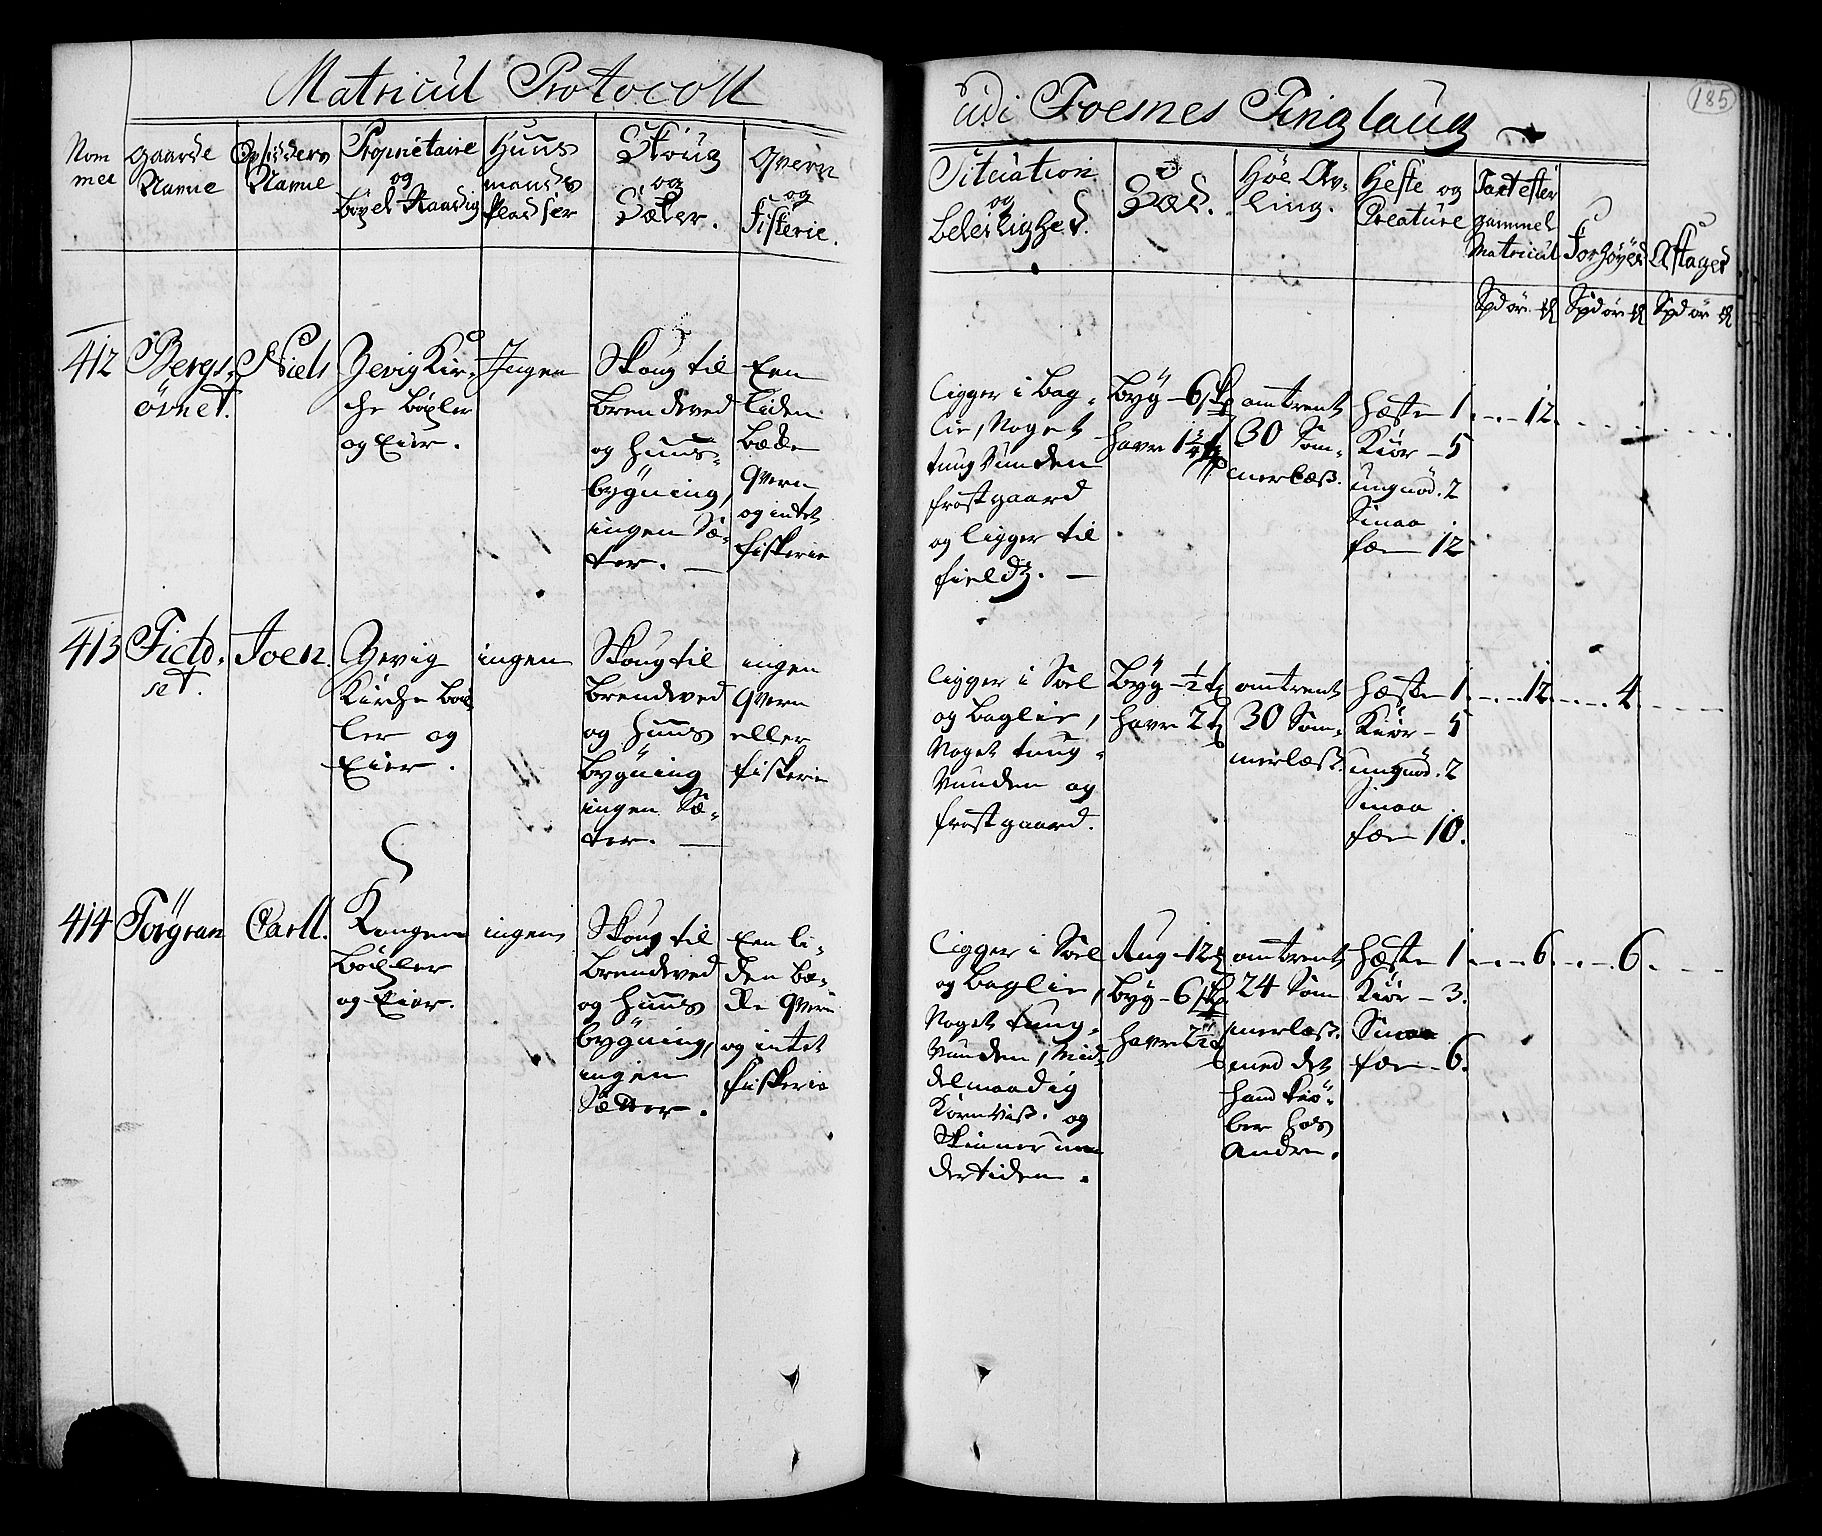 Matricul Protocoll
udi Foesnes Tinglaug
185
Nom
mer
Gaarde
Navne
Opsidderes
Navne
Proprietaire
og
bøxel Raadig
Huus
mands
Pladser
Skoug
og
Sæter.
Qvern
og
Fiskerie.
Situation
og
beleilighed.
Sæd.
Høe Av-
ling.
Heste og
Creature
Taxt efter
gammel
Matricul
Forhøyed
Aftaged
Spd ør
Spd ør
Spd ør
412
Bergs-
øvnet.
Niels
Zevig Kir-
che bøxler
og Eier.
Ingen
Skoug til
brendeved
og Huus-
bygning,
ingen Sæ-
ter.
Een
liden
bæde
Qvern
og intet
fiskerie
ligger i bag-
lie, Noget
tung Vunden
frostgaard
og ligger til
fields.
byg - 6
havre 1 3/4
omtrent
30 Som-
merlæs.
Hæste 1
Kiør - 5
ungnød. 2
Smaa
fæe 12
12
413
Fictd-
set.
Joen.
Zevig
Kirche bøx-
ler og
Eier.
ingen
Skoug til
brendeved
og Huus
bygning
ingen Sæ-
ter.
ingen
Qvern
eller
fiskerie
ligger i Soel
og baglie,
Noget tung-
Vunden og
frostgaard.
byg - 1/2 t
havre 2 t
omtrent
30 Som-
merlæs.
Hæste 1
Kiør - 5
ungnød. 2
Smaa
fæe 10.
12
4
414
Forgran
Carll.
Kongen
bøxler
og Eier.
ingen
Skoug til
brendeved
og Huus
bygning,
ingen
Sætter.
Een li-
den bæ-
de Qvern
og intet
fiskerie
ligger i Soel
og baglie,
Noget tung-
Vunden, Mid-
delmaadig
Kornvis. og
Skinner un-
dertiden.
Rug - 12
byg - 6
havre
omtrent
24 Som
merlæs.
med det
hand kiø-
ber hos
Andre.
Hæste 1
Kiør - 3.
Smaa
fæe - 6.
6
6